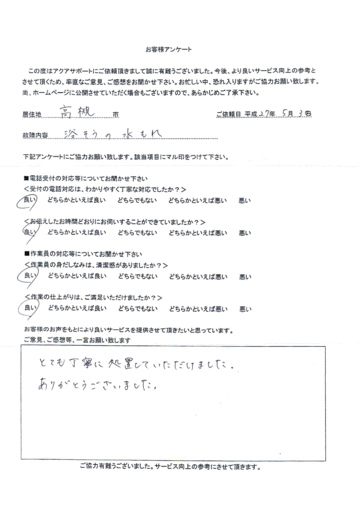 お客様アンケート
この度はアクアサポートにご依頼頂きまして誠に有難うございました。今後、より良いサービス向上の参考と
させて頂くため、率直なご意見、ご感想をお聞かせ下さい。お忙しい中、恐れ入りますがご協力お願い致します。
尚、ホームページに公開させていただく場合もございますので、あらかじめご了承下さい。
居住地 高槻 市 ご依頼日 平成27年 5月 3日
故障内容 浴そうの水もれ
下記アンケートにご協力お願い致します。該当項目にマル印をつけて下さい。
■電話受付の対応等についてお聞かせ下さい
<受付の電話対応は、わかりやすく丁寧な対応でしたか?>
良い どちらかといえば良い どちらでもない どちらかといえば悪い 悪い
<お伝えしたお時間どおりにお伺いすることができていましたか?>
良い どちらかといえば良い どちらでもない どちらかといえば悪い 悪い
■作業員の対応等についてお聞かせ下さい
<作業員の身だしなみは、清潔感がありましたか?>
良い どちらかといえば良い どちらでもない どちらかといえば悪い 悪い
<作業の仕上がりは、ご満足いただけましたか?>
良い どちらかといえば良い どちらでもない どちらかといえば悪い 悪い
お客様のお声をもとにより良いサービスを提供させて頂きたいと思っています。
ご意見、ご感想等、一言お願い致します
とても丁寧に処置していただけました。
ありがとうございました。
ご協力有難うございました。サービス向上の参考にさせて頂きます。